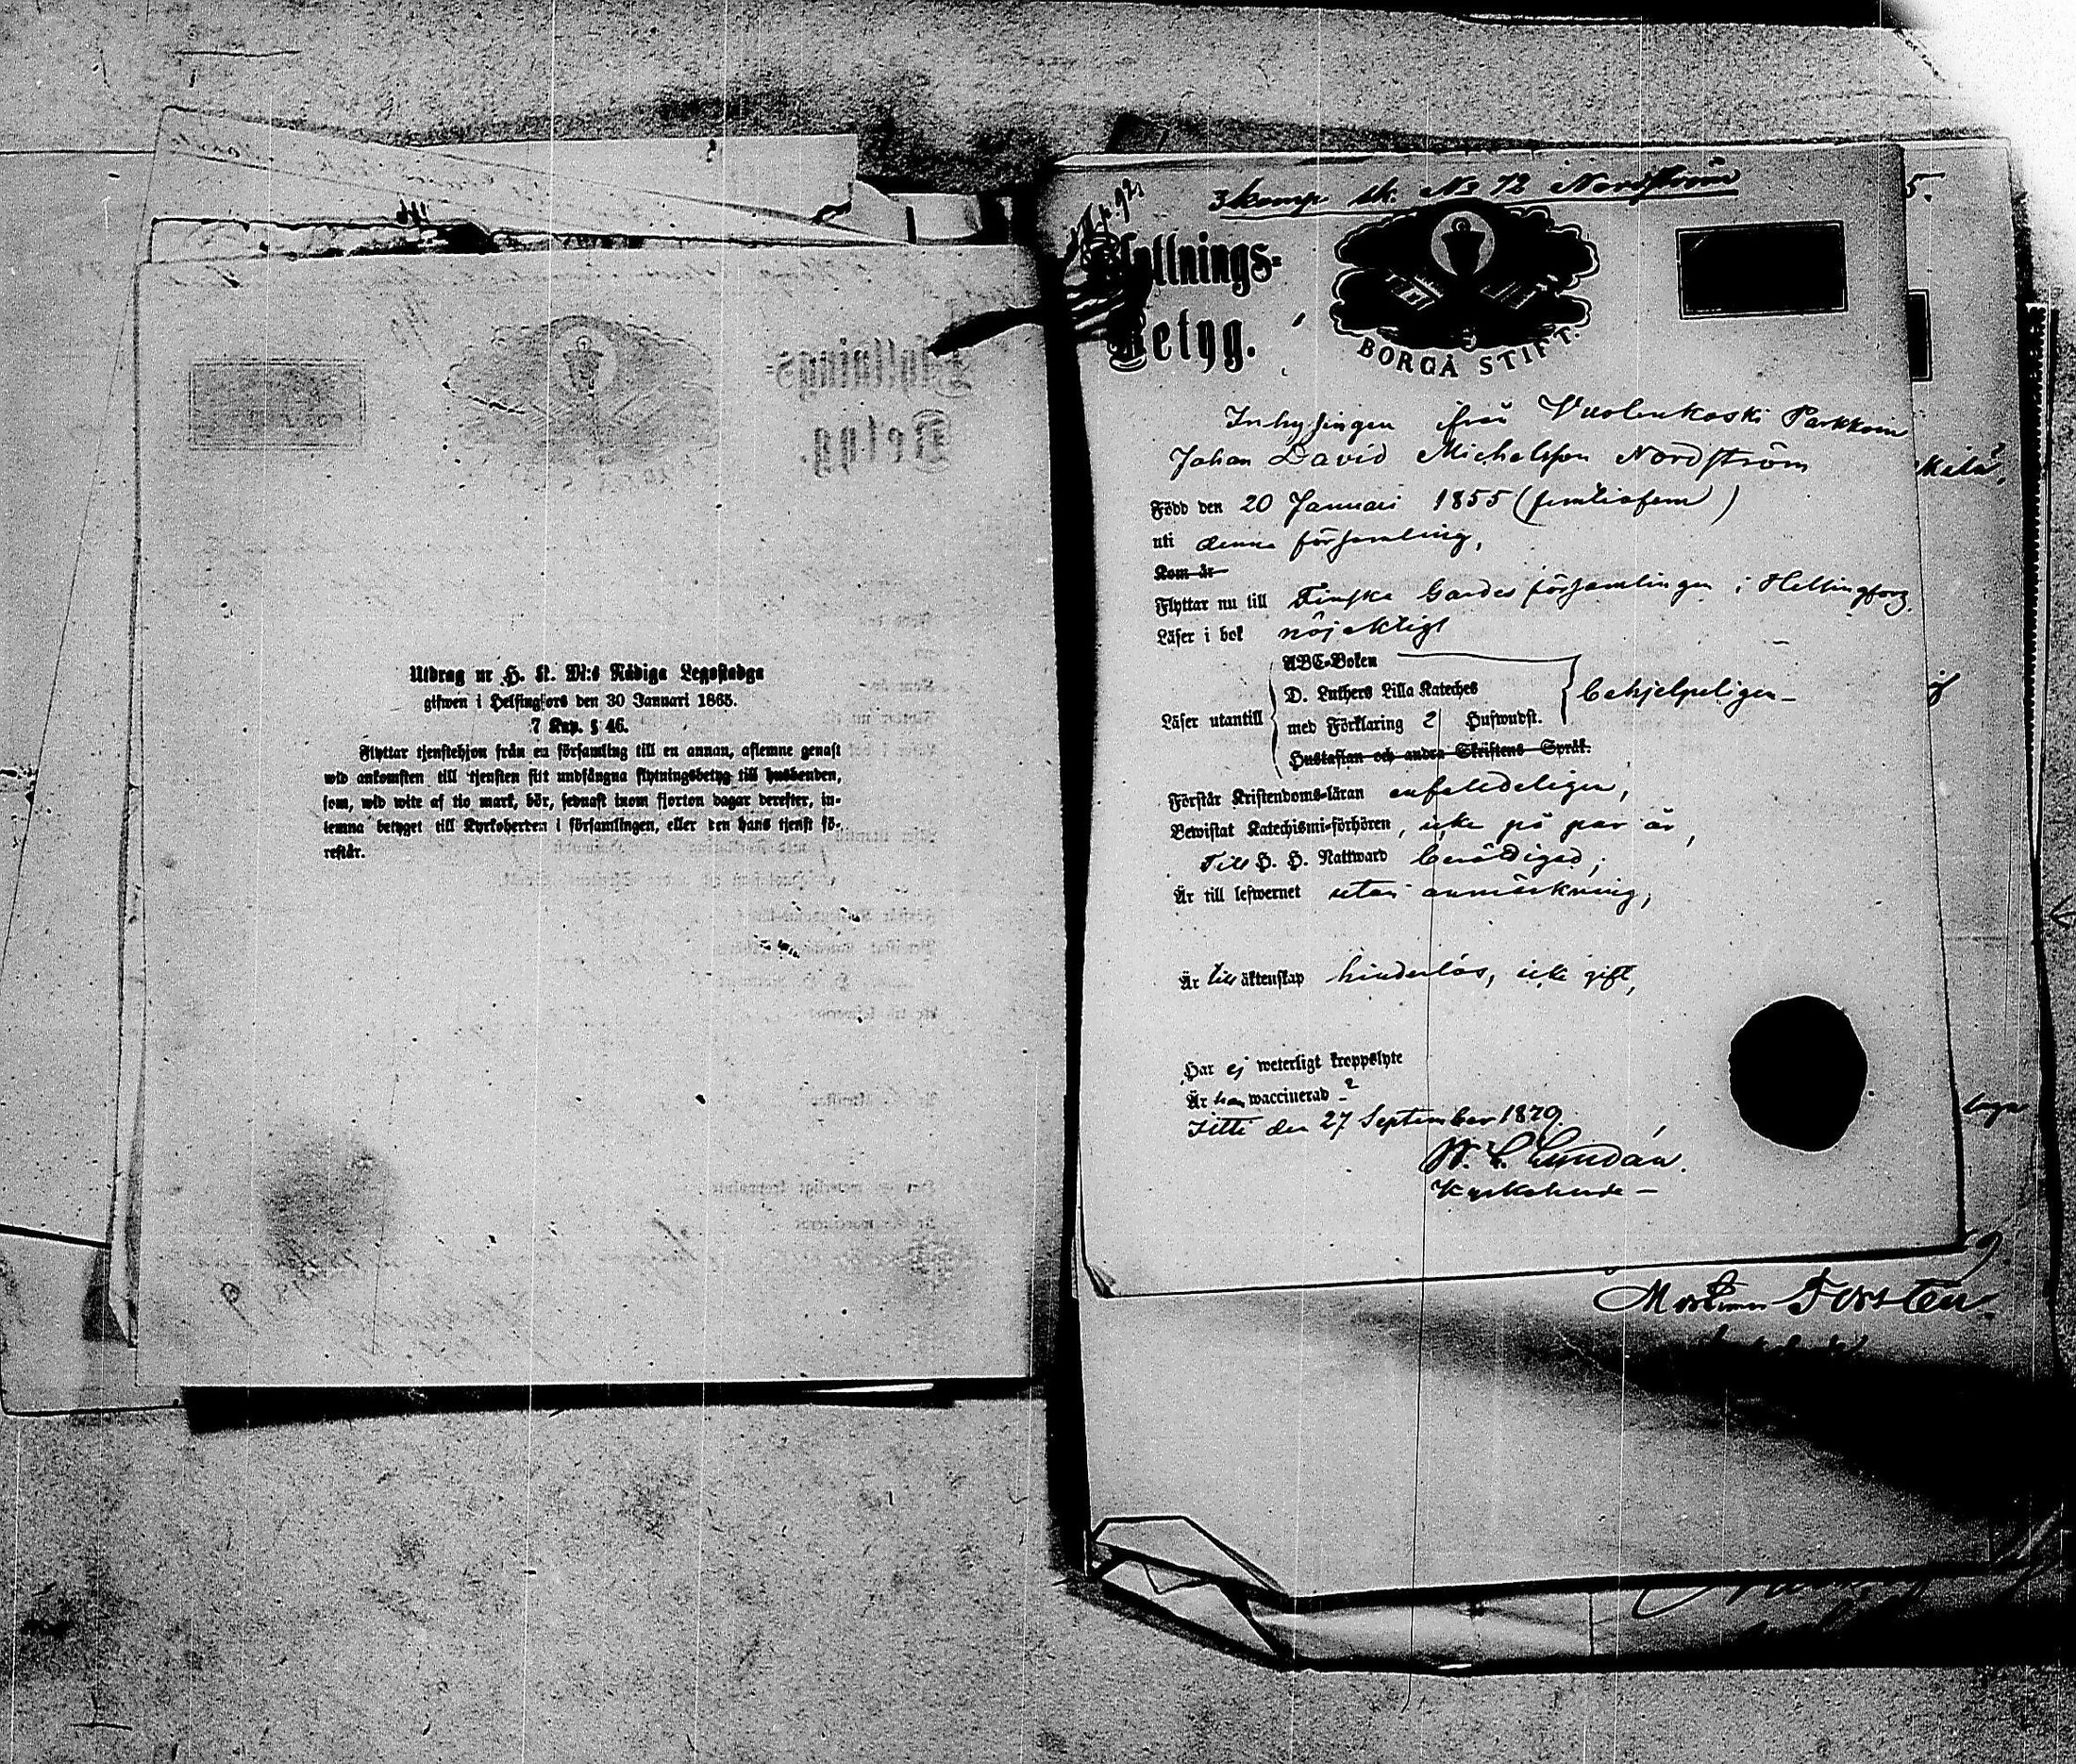 Utdrag ur H. K. M:s Nådiga Legostadga
gifwen i Helsingfors den 30 Januari 1865.
7 Kap. § 46.
Flyttar tjenstehjon från en församling till en annan, aflemne genast
wid ankomsten till tjensten sitt undfångna flytningsbetyg till husbonden,
som, wid wite af tio mark, bör, sednast inom fjorton dagar derefter, in-
lemna betyget till Kyrkoherden i församlingen, eller den hans tjenst fö-
restår.
3 komp. sk. No 72 Nordström
Flyttnings-
Betyg.
BORGÅ STIFT.
Inhysingen från Vuolenkoski Parkkom
Johan David Michelsson Nordström
Född den 20 Januari 1855 (femtiofem)
uti denna församling,
Kom år
Flyttar nu till Finska Gardes församlingen i Helsingfors.
Läser i bok nöjaktigt
ABC-Boken
D. Luthers Lilla Kateches
Läser utantill med Förklaring 2 Hufwudst. behjelpeligen
Hustaflan och andra Skriftens Språk.
Förstår Kristendoms-läran enfaldeligen,
Bewistat Katechismi-förhören, icke på par år,
Till H. H. Nattward berättigad;
Är till lefwernet utan anmärkning,
Är till äktenskap hinderlös, icke gift,
Har ej weterligt kroppslyte
Är han waccinerad ?
Iitti den 27 September 1879.
Kyrkoherde
Forstén.